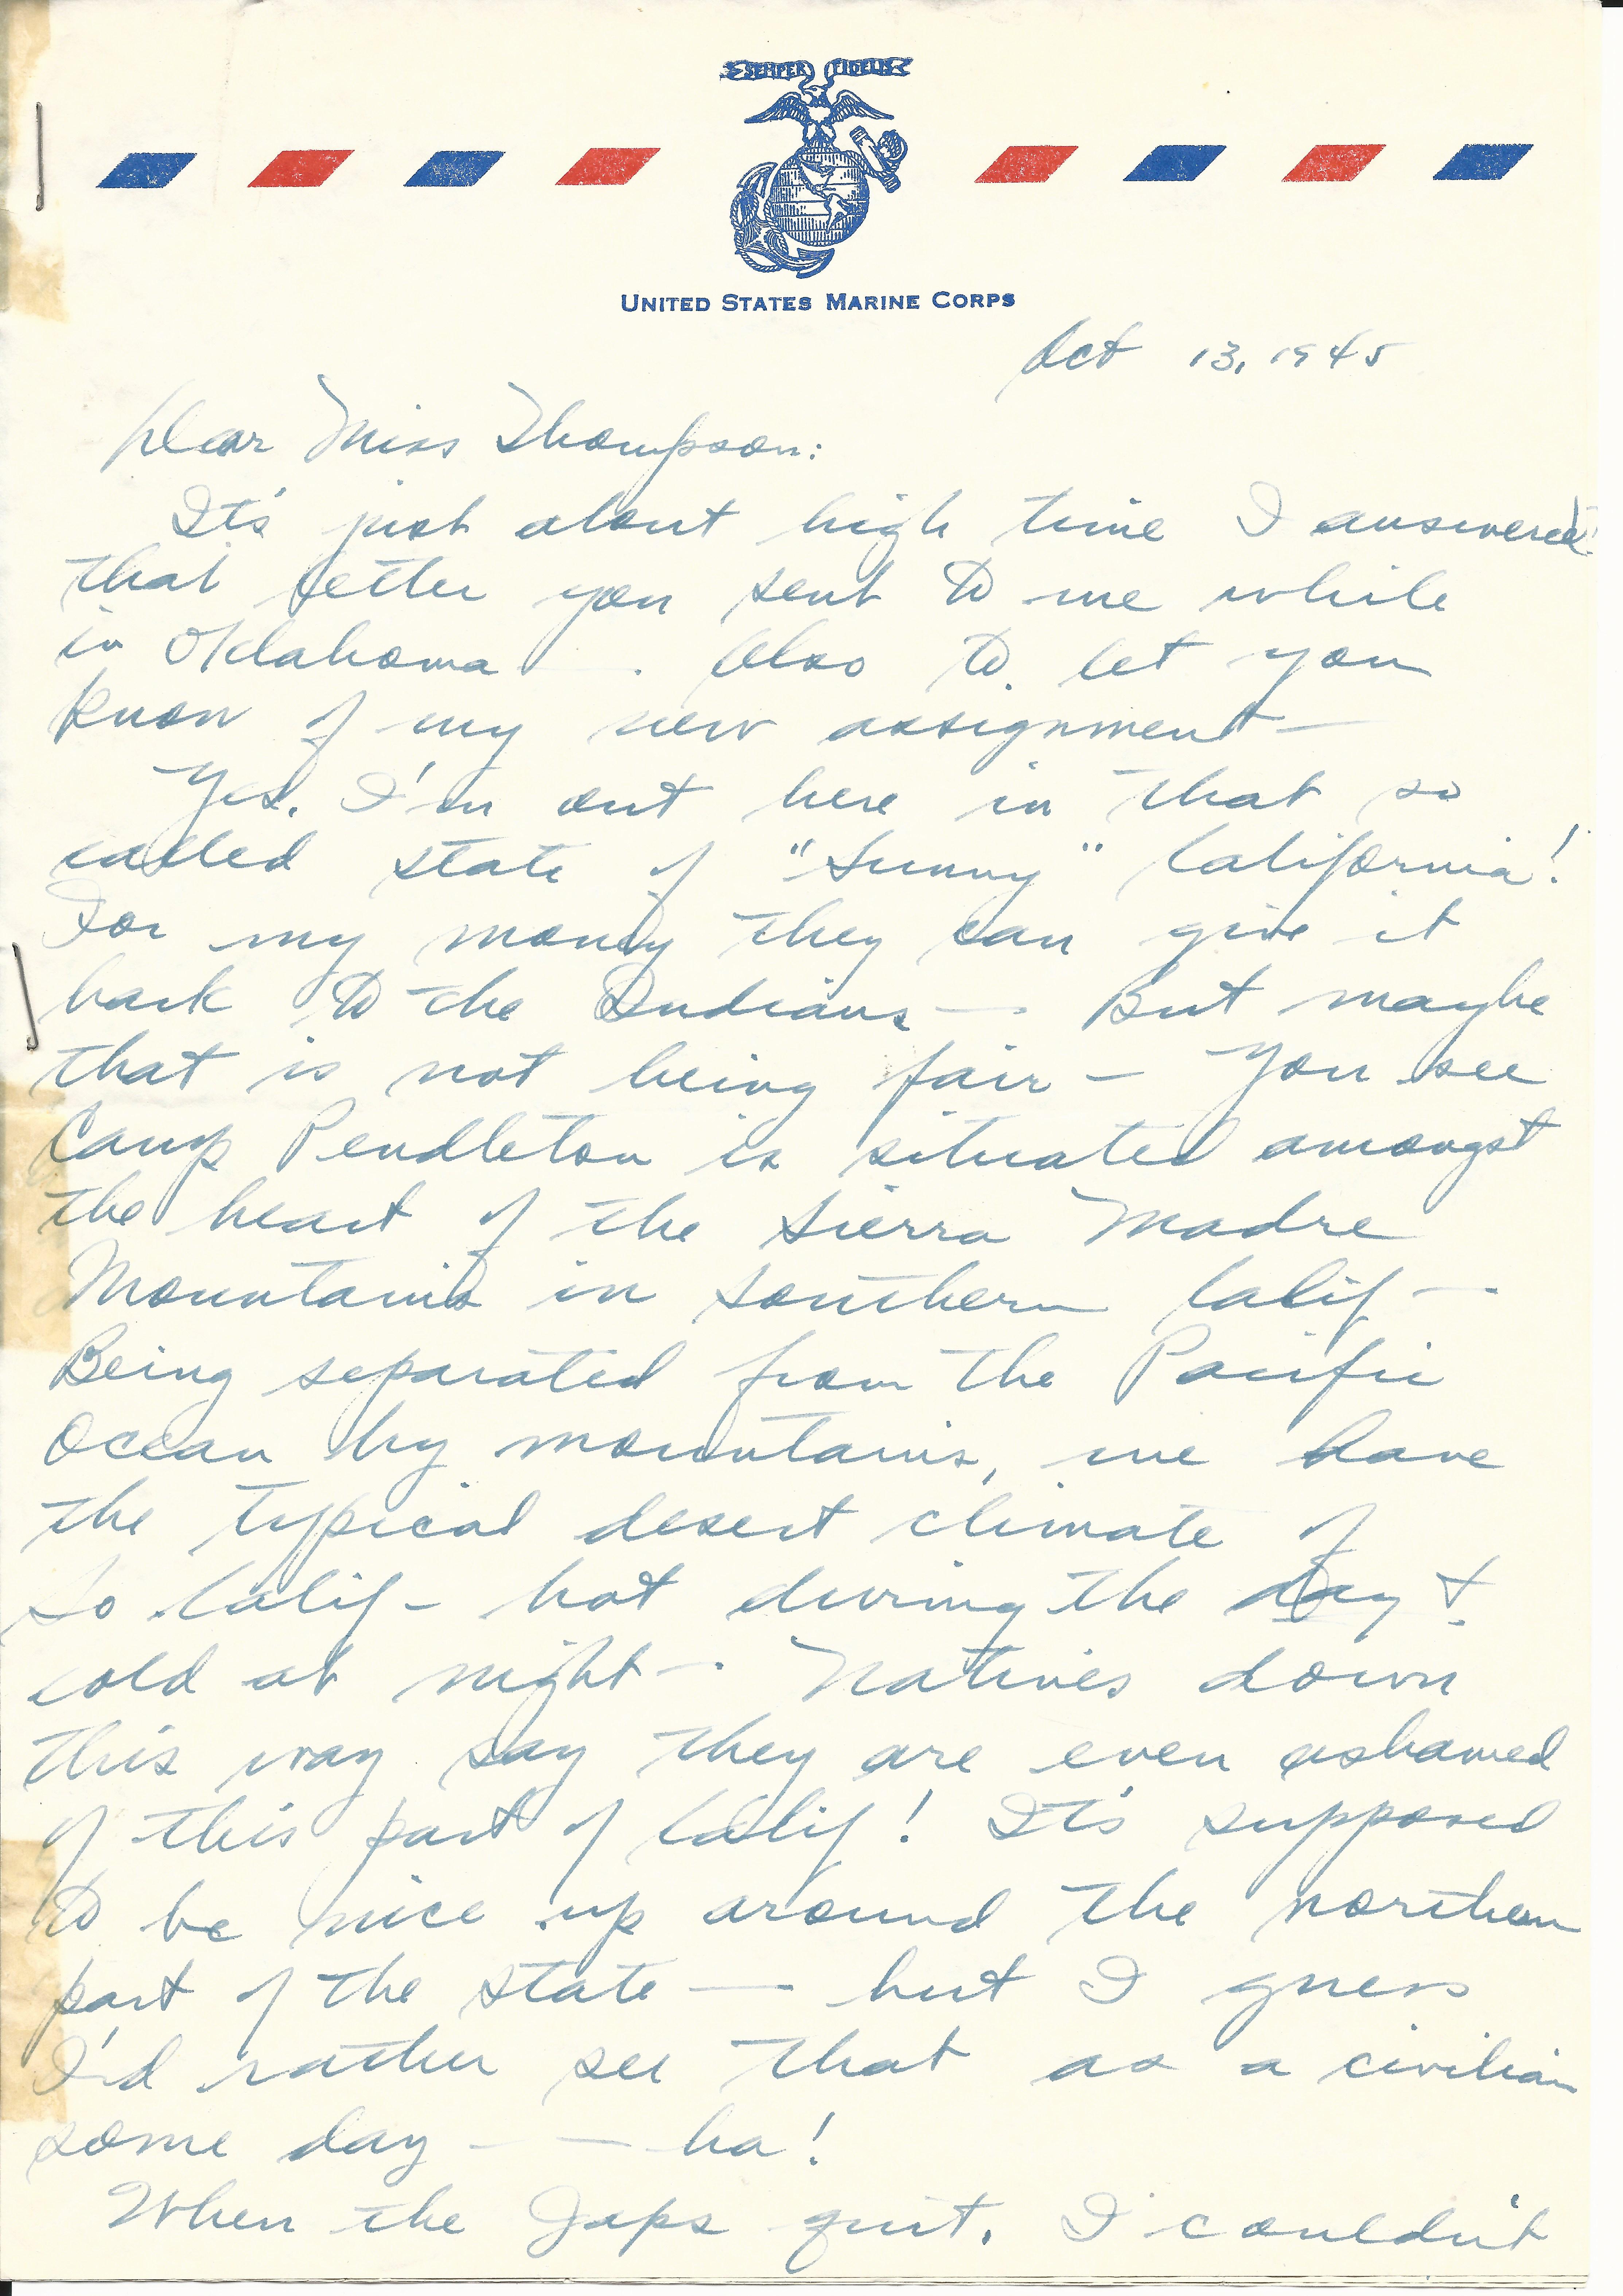 SEMPER FIDELIS
UNITED STATES MARINE CORPS
Oct 13, 1945
Dear Miss Thompson:
It's just about high time I answered
that letter you sent to me while
in Oklahoma —. Also to let you
know of my new assignment —
Yes, I'm out here in that so
called state of "Sunny" California!
For my money they can give it
back to the Indians — But maybe
that is not being fair — You see
Camp Pendleton is situated amongst
the heart of the Sierra Madre
Mountains in southern Calif —
Being separated from the Pacific
Ocean by mountains, we have
the typical desert climate of
So Calif — hot during the day &
cold at night —. Natives down
this way say they are even ashamed
of this part of Calif! It's supposed
to be nice up around the northern
part of the state — but I guess
I'd rather see that as a civilian
some day — — ha!
When the Japs quit, I couldn't